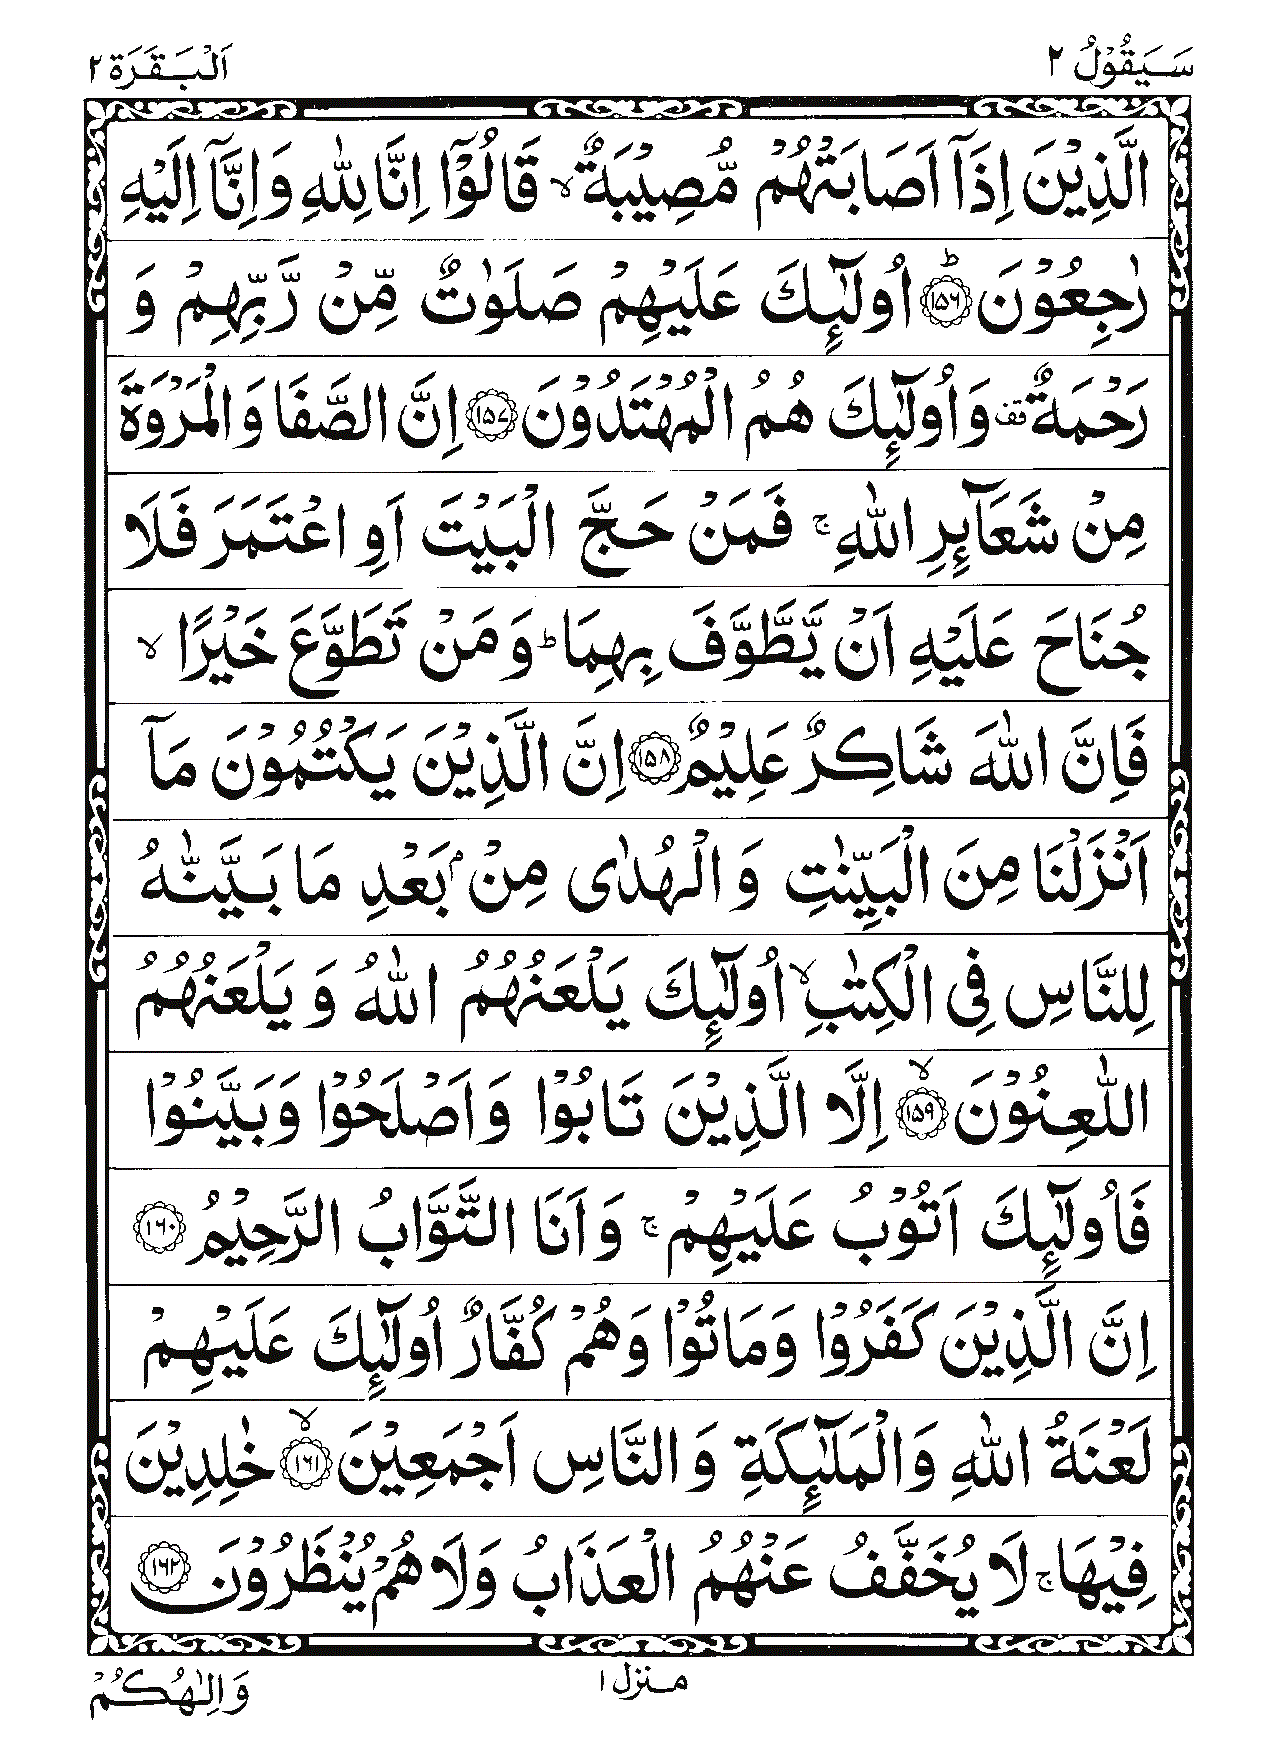 سَيَقُوْلُ ٢
اَلْبَقَرَة ٢
الَّذِيْنَ اِذَآ اَصَابَتْهُمْ مُّصِيْبَةٌ ۙ قَالُوْٓا اِنَّا لِلّٰهِ وَاِنَّآ اِلَيْهِ
رٰجِعُوْنَ ؕ‏﴿١٥٦﴾ اُولٰٓئِكَ عَلَيْهِمْ صَلَوٰتٌ مِّنْ رَّبِّهِمْ وَ
رَحْمَةٌ ۟ قف وَاُولٰٓئِكَ هُمُ الْمُهْتَدُوْنَ ﴿١٥٧﴾ اِنَّ الصَّفَا وَالْمَرْوَةَ
مِنْ شَعَآئِرِ اللّٰهِ ۚ فَمَنْ حَجَّ الْبَيْتَ اَوِ اعْتَمَرَ فَلَا
جُنَاحَ عَلَيْهِ اَنْ يَّطَّوَّفَ بِهِمَا ؕ وَمَنْ تَطَوَّعَ خَيْرًا ۙ
فَاِنَّ اللّٰهَ شَاكِرٌ عَلِيْمٌ ﴿١٥٨﴾ اِنَّ الَّذِيْنَ يَكْتُمُوْنَ مَآ
اَنْزَلْنَا مِنَ الْبَيِّنٰتِ وَالْهُدٰى مِنْۢ بَعْدِ مَا بَيَّنّٰهُ
لِلنَّاسِ فِى الْكِتٰبِ ۙ اُولٰٓئِكَ يَلْعَنُهُمُ اللّٰهُ وَ يَلْعَنُهُمُ
اللّٰعِنُوْنَ ۙ‏﴿١٥٩﴾ اِلَّا الَّذِيْنَ تَابُوْا وَاَصْلَحُوْا وَبَيَّنُوْا
فَاُولٰٓئِكَ اَتُوْبُ عَلَيْهِمْ ۚ وَاَنَا التَّوَّابُ الرَّحِيْمُ ﴿١٦٠﴾
اِنَّ الَّذِيْنَ كَفَرُوْا وَمَاتُوْا وَهُمْ كُفَّارٌ اُولٰٓئِكَ عَلَيْهِمْ
لَعْنَةُ اللّٰهِ وَالْمَلٰٓئِكَةِ وَالنَّاسِ اَجْمَعِيْنَ ۙ‏﴿١٦١﴾ خٰلِدِيْنَ
فِيْهَا ۚ لَا يُخَفَّفُ عَنْهُمُ الْعَذَابُ وَلَا هُمْ يُنْظَرُوْنَ ﴿١٦٢﴾
منزل ١
وَاِلٰهُكُمْ